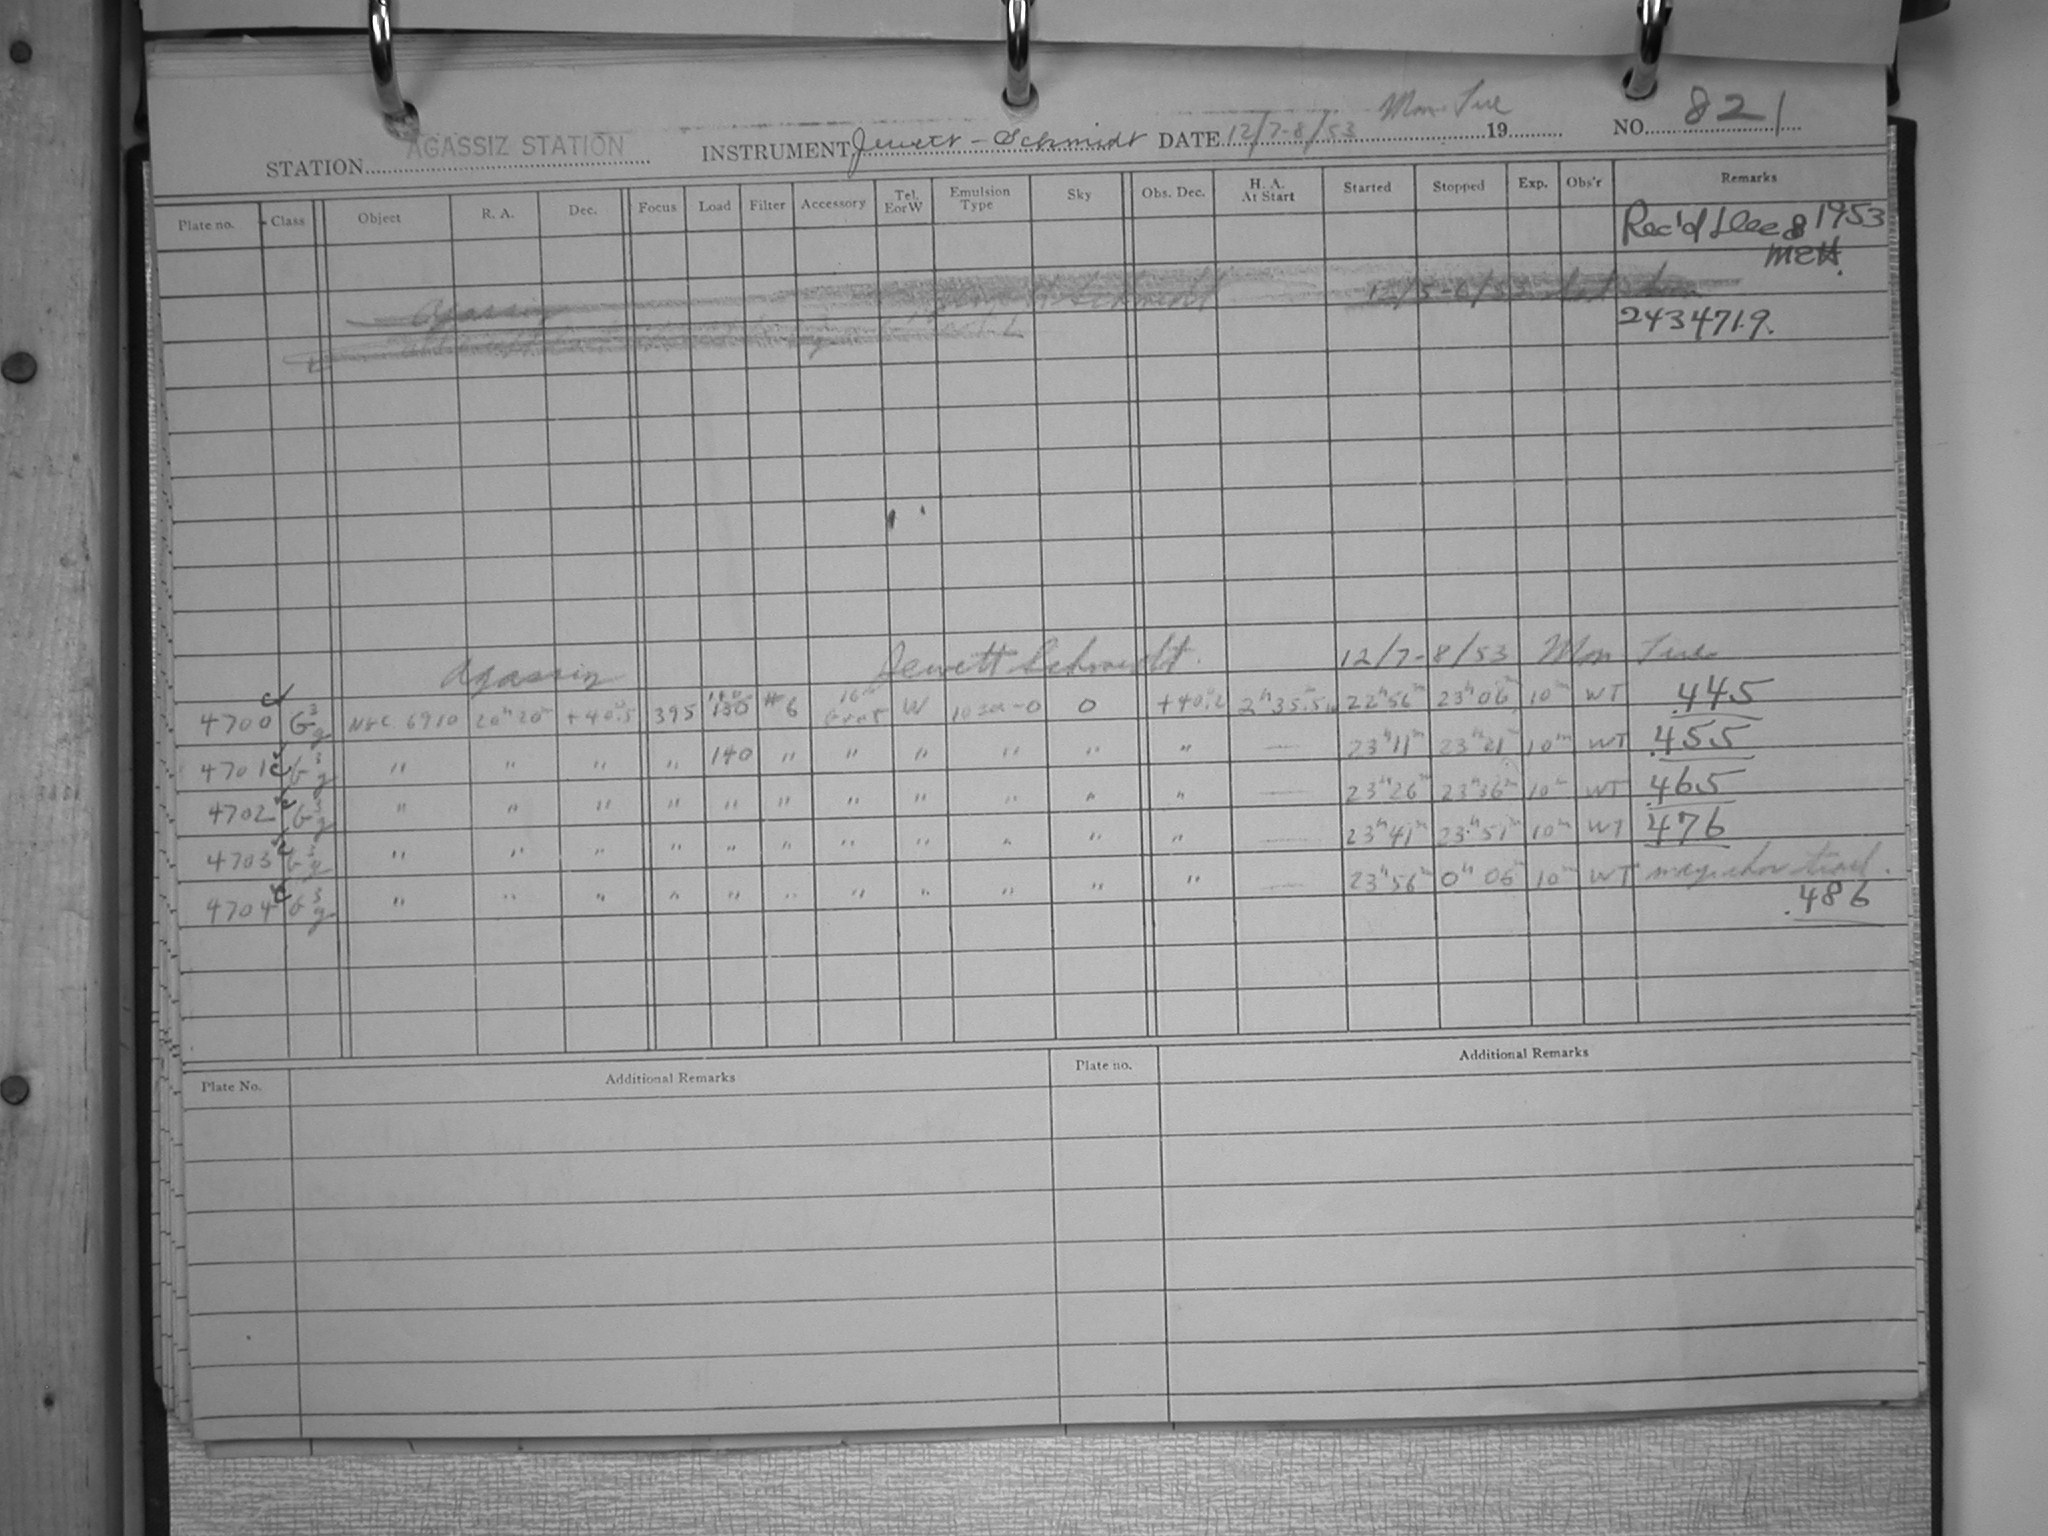 Mon Tue
STATION AGASSIZ STATION INSTRUMENT Jewett-Schmidt DATE 12/7-8/53 19 NO. 821
Plate no. Class Object R. A. Dec. Focus Load Filter Accessory Tel. E or W Emulsion Type Sky Obs. Dec. H. A. At Start Started Stopped Exp. Obs'r Remarks
Rec'd Dec 8 1953
MEH.
Agassiz Schmidt 12/5-6/53
2434719.
Agassiz Jewett Schmidt. 12/7-8/53 Mon Tue
4700 G3g NGC 6910 20h20m +40°.5 395 130 #6 W 103a-O 0 +40°.2 2h35.5 22h56m 23h06m 10m WT .445
4701 G3g " " " " 140 " " " " " " — 23h11m 23h21m 10m WT .455
4702 G3g " " " " " " " " " " " — 23h26m 23h36m 10m WT .465
4703 G3g " " " " " " " " " " " — 23h41m 23h51m 10m WT .476
4704 G3g " " " " " " " " " " " — 23h56m 0h06m 10m WT may show trail.
.486
Plate No. Additional Remarks Plate no. Additional Remarks